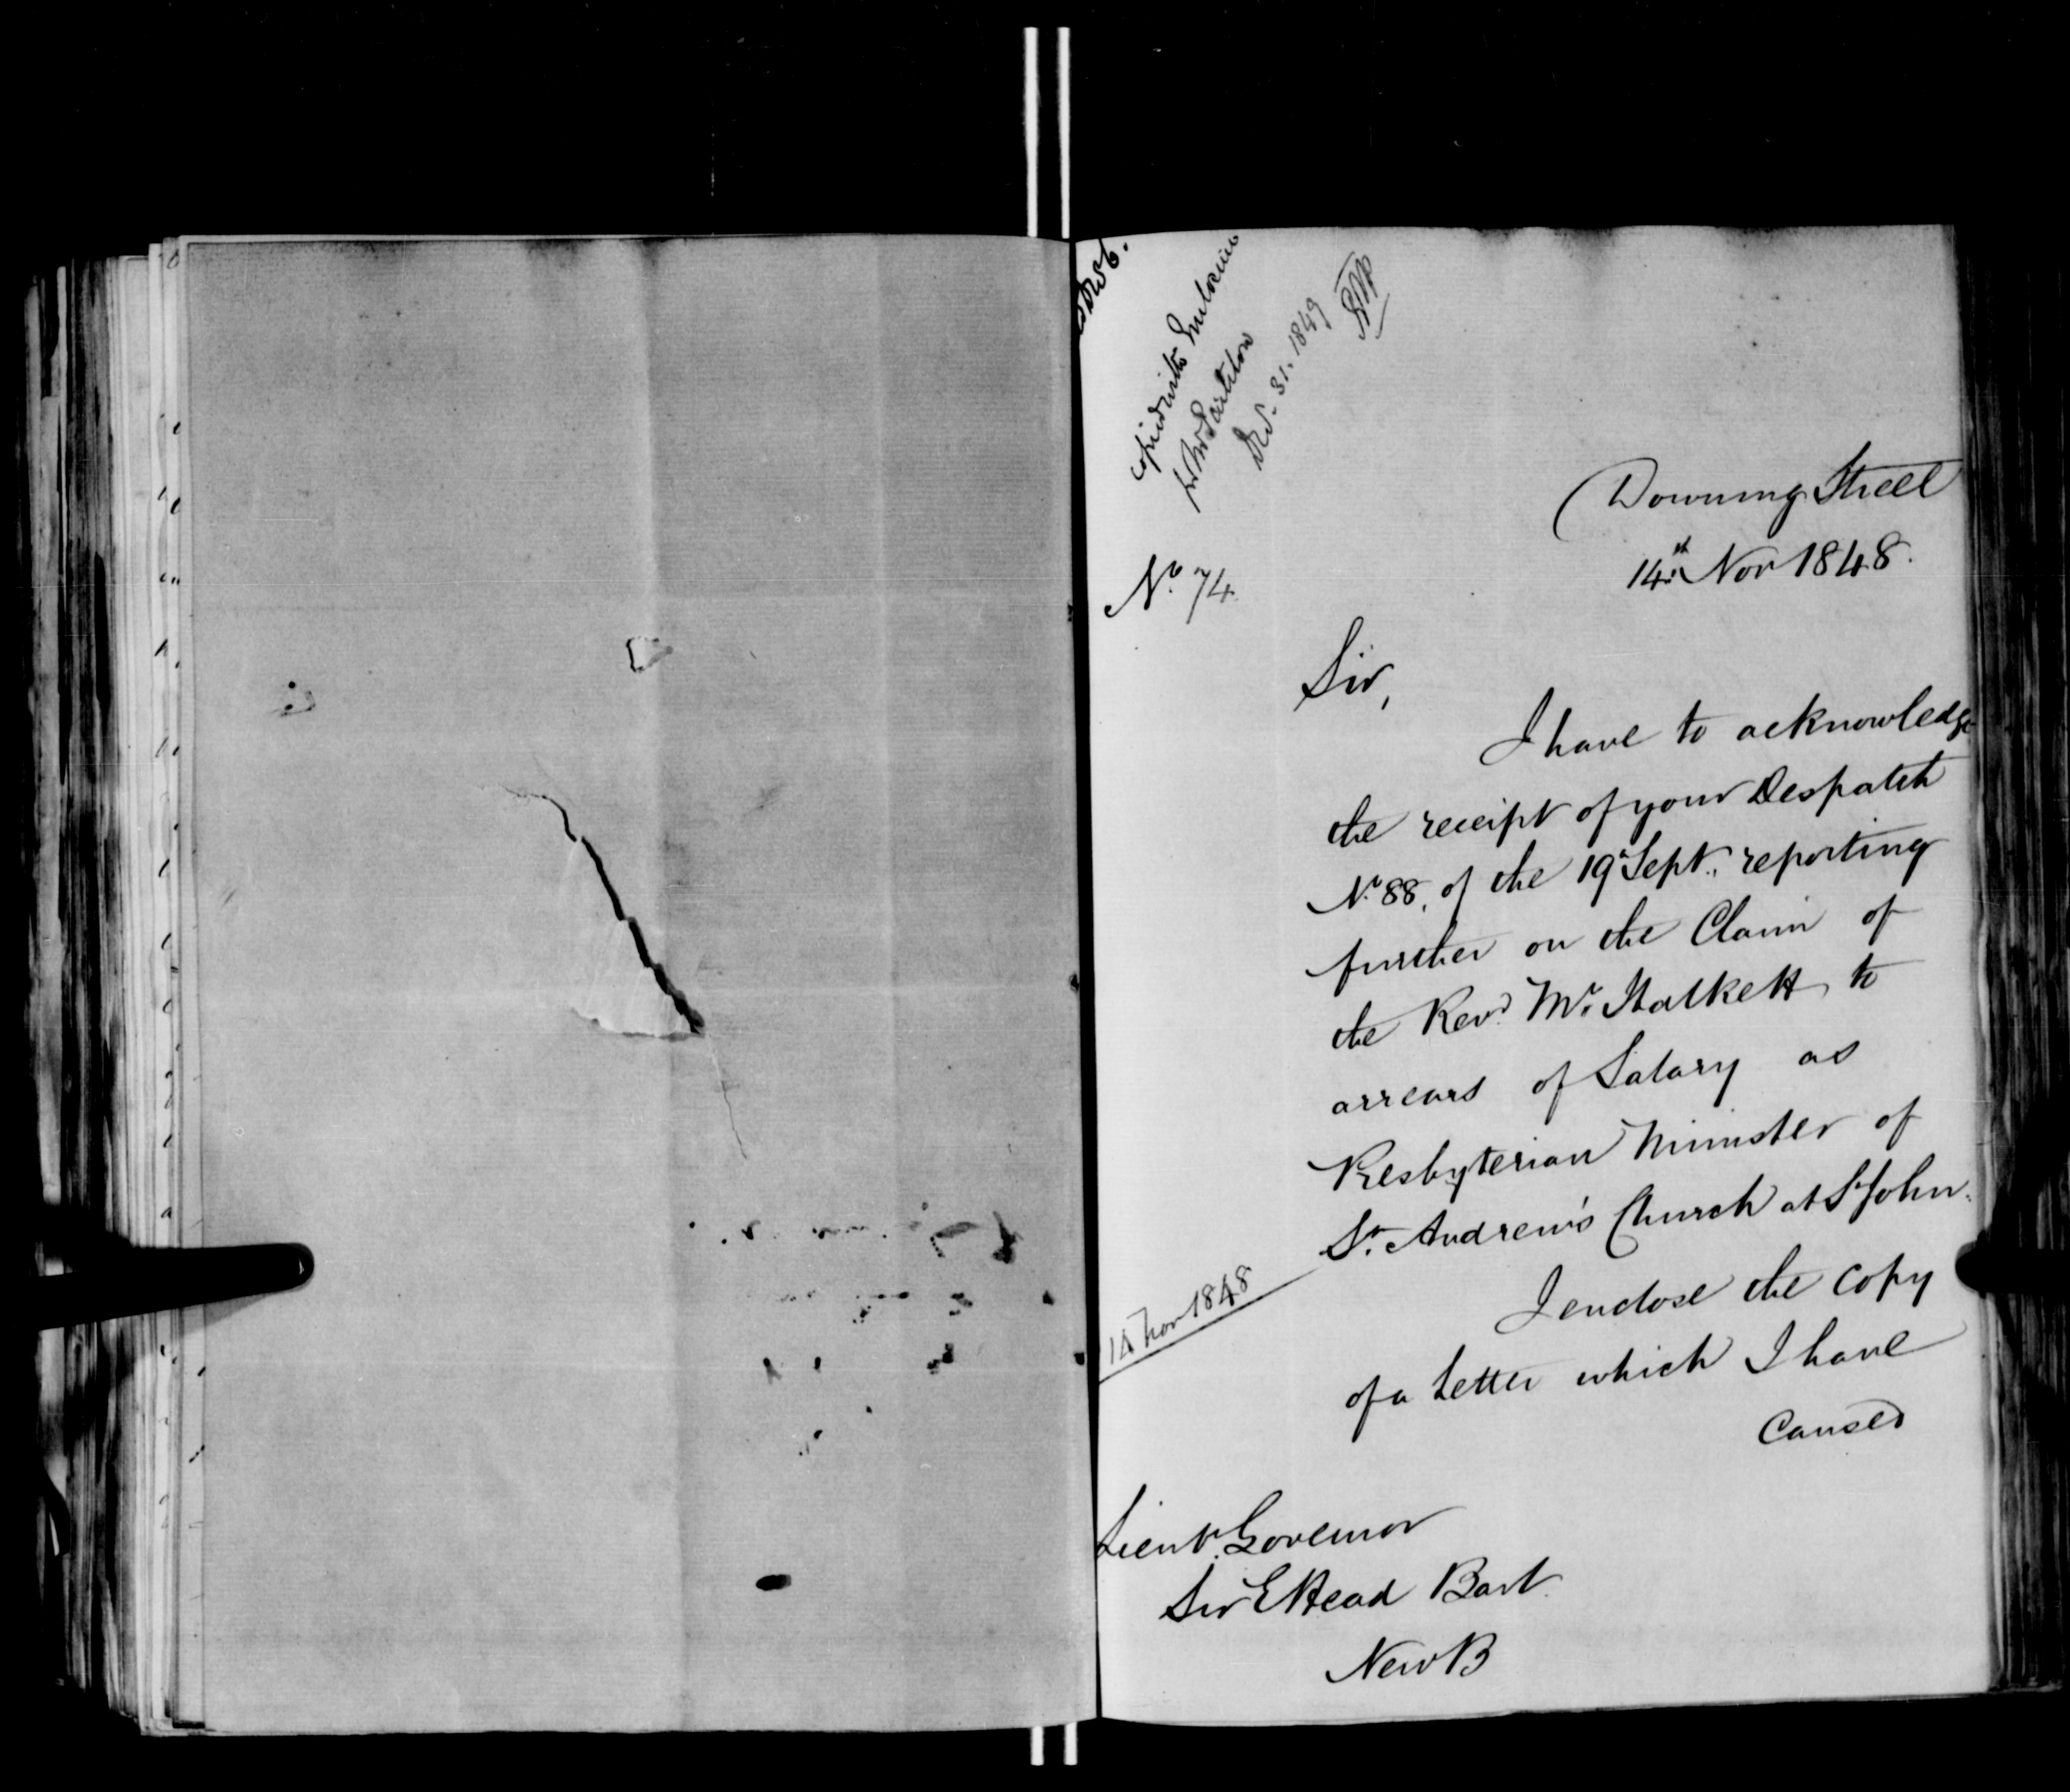 copied with Enclosure
for Mr Partelow
Dec. 31. 1849
Downing Street
14th Nov 1848.
No. 74
Sir,
I have to acknowledge
the receipt of your Despatch
No. 88, of the 19 Sept., reporting
further on the Claim of
the Revd. Mr. Halkett to
arrears of Salary as
Presbyterian Minister of
St. Andrew's Church at St John.
14 Nov 1848
I enclose the copy
of a Letter which I have
Caused
Lieut. Governor
Sir E Head Bart.
New B